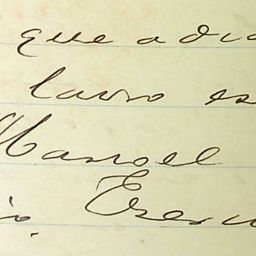 que a dia
lavro es
Manoel
io, Escri